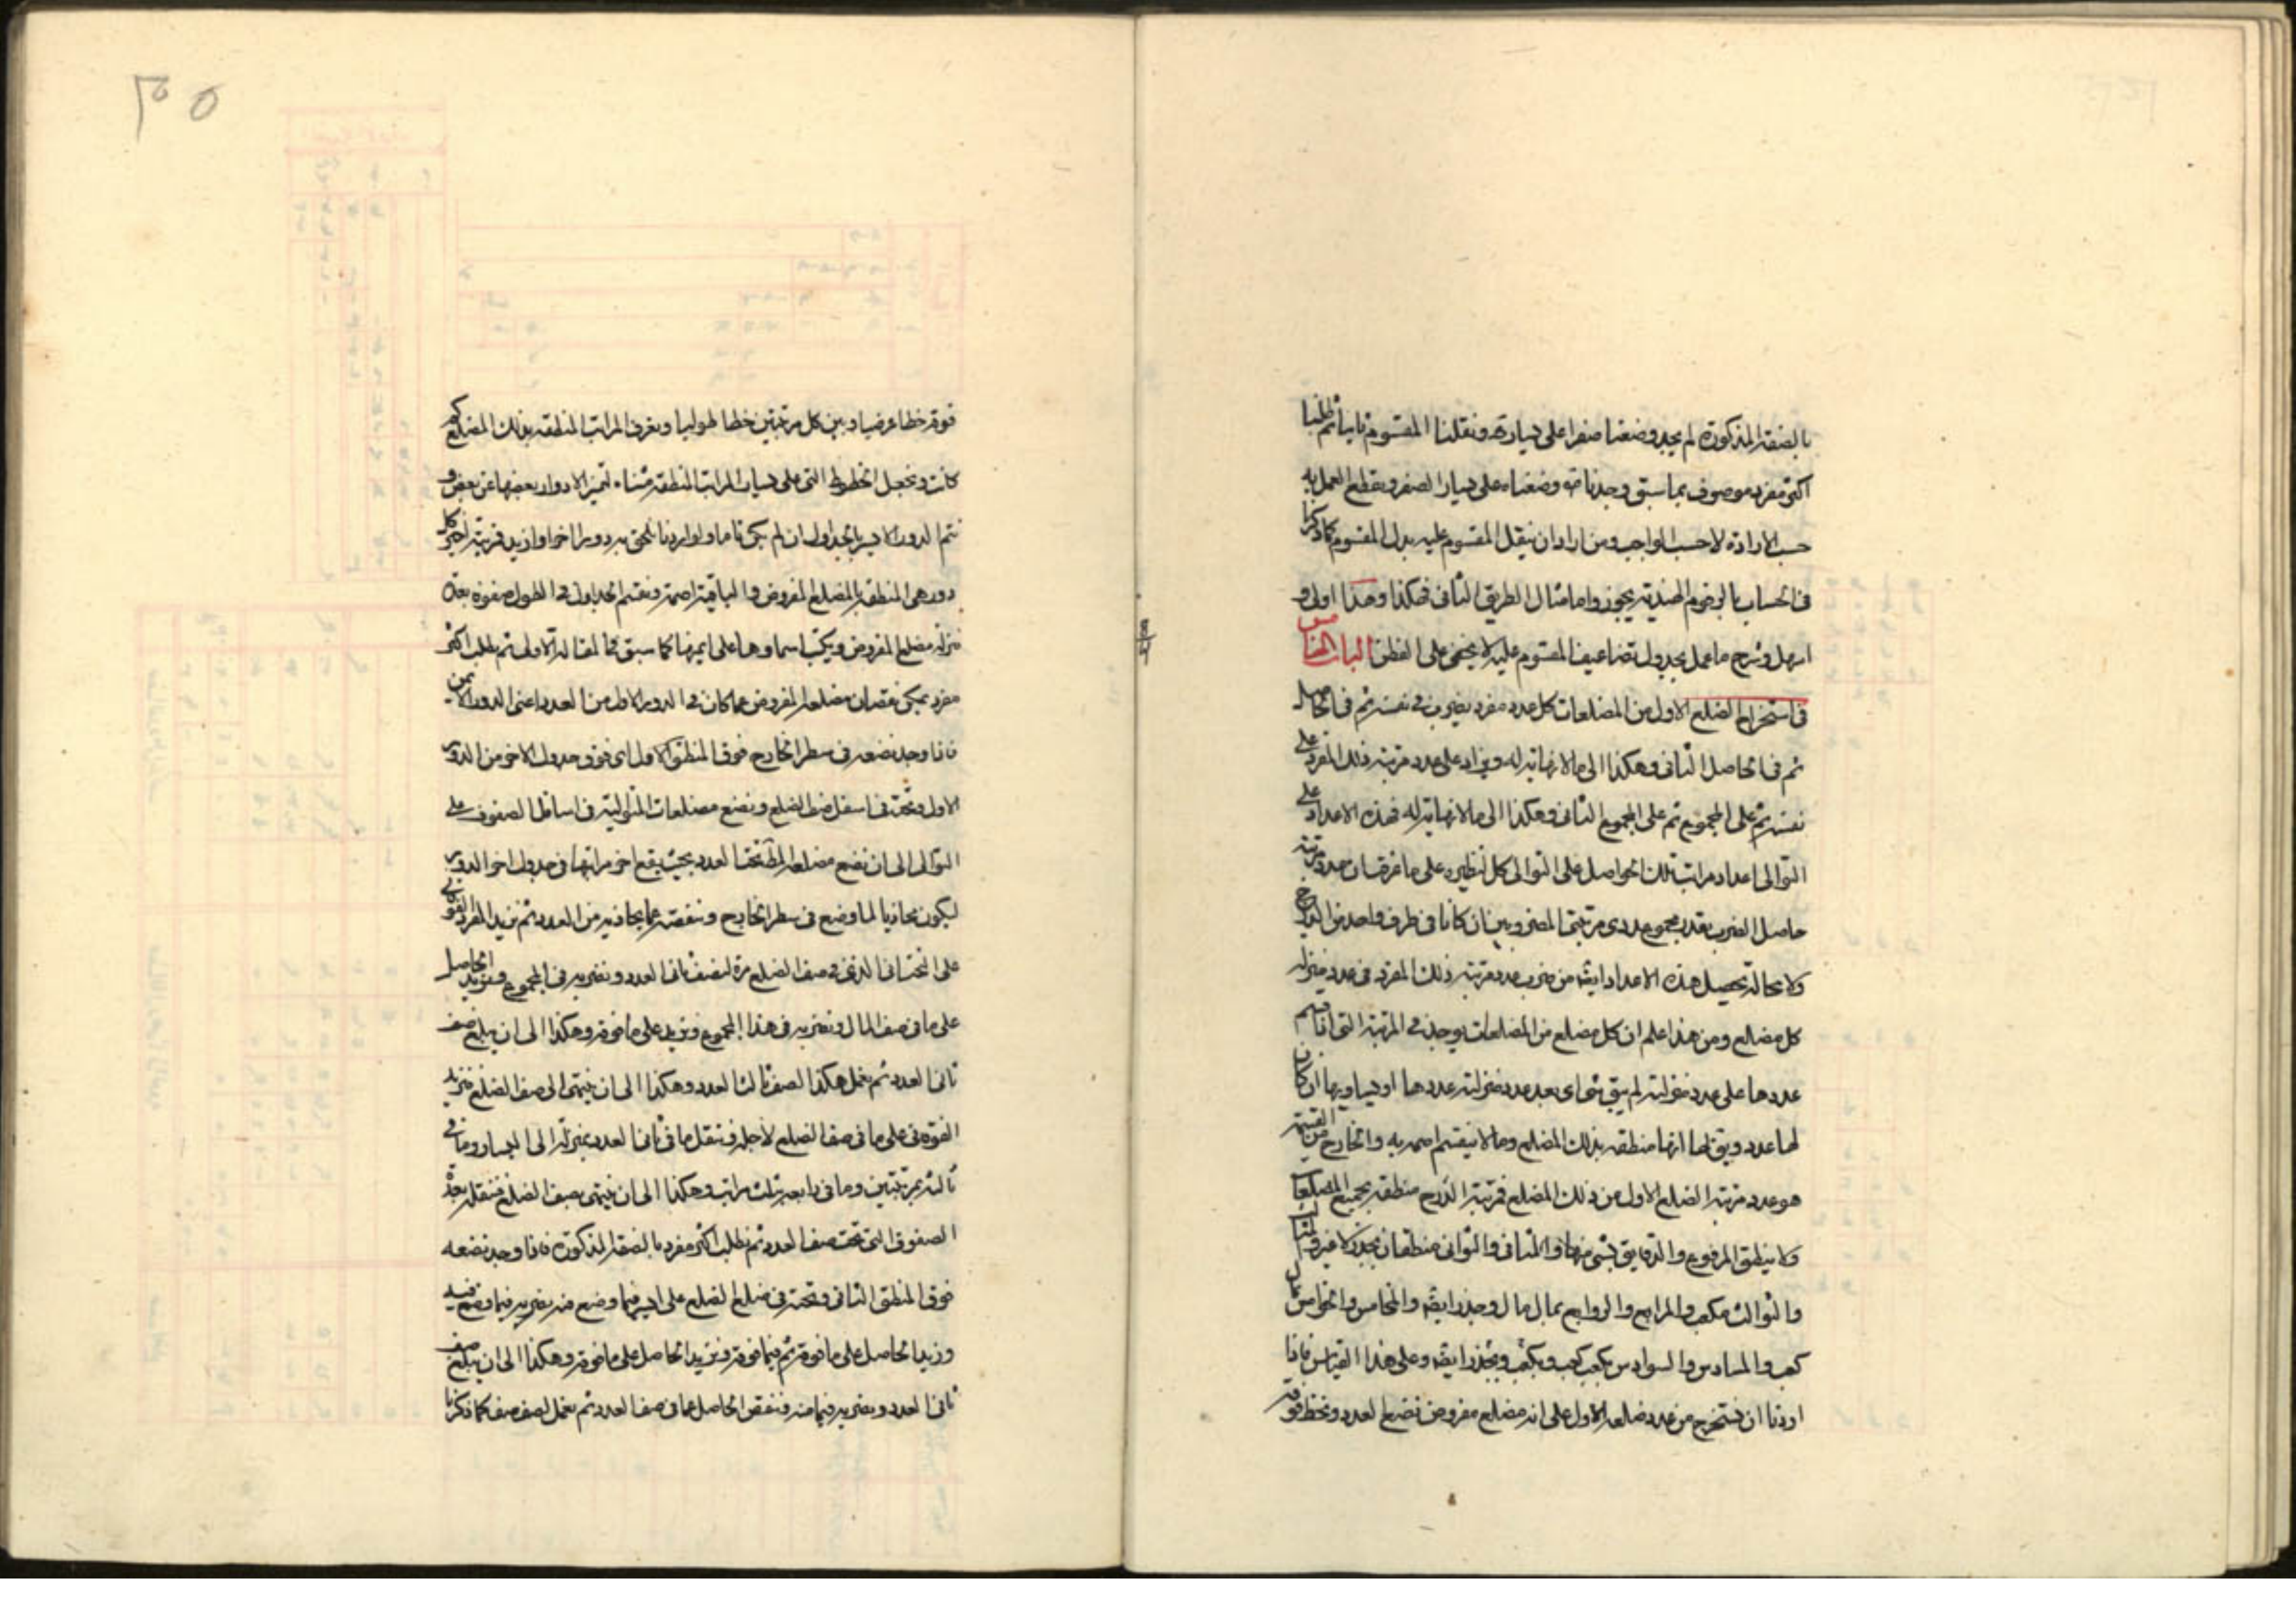 بالصفة المذكورة لم يجد وضعنا صفرا على يساره ونقلنا المقسوم ثانيا ثم طلبنا
اكثر مفرد موصوف بما سبق وجدناه وضعناه على يسار الصفر ونقطع العمل به
حسب الارادة لا حسب الواجب ومن اراد ان ينقل المقسوم عليه بدل المقسوم كما ذكرنا
فى الحساب بالرقوم الهندية يجوز واما مثال الطريق الثانى فهكذا وهذا اولى و
اسهل وشرح ما عمل بجدول تضاعيف المقسوم عليه لا يخفى على الفطن الباب الخامس
فى استخراج الضلع الاول من المضلعات كل عدد مفرد يضرب فى نفسه ثم فى الحاصل
ثم فى الحاصل الثانى وهكذا الى ما لا نهاية له ويزاد على عدد مرتبة ذلك المفرد على
نفسه ثم على المجموع ثم على المجموع الثانى وهكذا الى ما لا نهاية له فهذه الاعداد على
التوالى اعداد مراتب تلك الحواصل على التوالى كل لنظيره على ما عرفت ان عدد مرتبة
حاصل الضرب بقدر مجموع عددى مرتبتى المضروبين ان كانا فى طرف واحد من الدرج
ولا محالة يحصل هذه الاعداد ايضا من ضرب عدد مرتبة ذلك المفرد فى عدد منزلة
كل مضلع ومن هذا علم ان كل مضلع من المضلعات يوجد فى المرتبة التى اذا قسم
عددها على عدد منزلته لم يبق شى اى يعد عدد منزلته عددها او يساويها ان كان
لها عدد ويق لها انها منطقه بذلك المضلع وما لا ينقسم اصم به والخارج من القسمة
هو عدد مرتبة الضلع الاول من ذلك المضلع فمرتبة الدرج منطقه بجميع المضلعات
ولا ينطق المرفوع والدقايق بشى منها والمثانى والثوانى منطقان بجذر لا غير والمثالث
والثوالث مكعب والمرابع والروابع بمال مال وجذر ايضا والمخامس والخوامس بمال
كعب والمسادس والسوادس بكعب كعب وبكعب وبجذر ايضا وعلى هذا القياس فاذا
اردنا ان نستخرج من عدد ضلعه الاول على انه مضلع مفروض نضع العدد ونخط فوقه
فوقه خطا عرضيا وبين كل مرتبتين خطا طوليا ونعرف المراتب المنطقة بذلك المضلع كم
كانت ونجعل الخطوط التى على يسار المراتب المنطقة مثناة ليتميز الادوار بعضها عن بعض و
نتم الدور الاخير بالجداول ان لم يكن تاما ولو اردنا نلحق به دورا اخر او ازيد فرتبة اخير كل
دور هى المنطقة بالمضلع المفروض والباقية اصمة ونقسم الجداول فى الطول صفوفه بعدة
منزلة مضلع المفروض ويكتب اسماوها على ايمنها كما سبق فى المقالة الاولى ثم نطلب اكثر
مفرد يمكن نقصان مضلعه المفروض مما كان فى الدور الاول من العدد اعنى الدور الايمن
فاذا وجد نضعه فى سطر الخارج فوق المنطق الاول اى فوق جدول الاخر من الدور
الاول وتحته فى اسفل صف الضلع ونضع مضلعاته المتوالية فى اسافل الصفوف على
التوالى الى ان نضع مضلعه المط تحت العدد بحيث يقع اخر مراتبها فى جدول اخر الدور
ليكون محاذيا لما وضع فى سطر الخارج وننقصه مما يحاذيه من العدد ثم نزيد المفرد الفوقانى
على التحتانى الذى فى صف الضلع مرة لصف ثانى العدد ونضربه فى المجموع ونزيد الحاصل
على ما فى صف المال ونضربه فى هذا المجموع ونزيد على ما فوقه وهكذا الى ان يبلغ صف
ثانى العدد ثم نعمل هكذا لصف ثالث العدد وهكذا الى ان ينتهى الى صف الضلع فنزيد
الفوقانى على ما فى صف الضلع لاجله فننقل ما فى ثانى العدد بمرتبة الى اليسار وما فى
ثالثه بمرتبتين وما فى رابعه بثلث مراتب وهكذا الى ان ينتهى بصف الضلع فننقله بعدة
الصفوف التى تحت صف العدد ثم نطلب اكثر مفرد بالصفة المذكورة فاذا وجد نضعه
فوق المنطق الثانى وتحته فى صف الضلع على ايسر فيما وضع منه نضربه فيما وضع فيه
ونزيد الحاصل على ما فوقه ثم فيما فوقه ونزيد الحاصل على ما فوقه وهكذا الى ان يبلغ صف
ثانى العدد ونضربه فيما منه وننقص الحاصل مما فى صف العدد ثم نعمل لصف صف كما ذكرنا